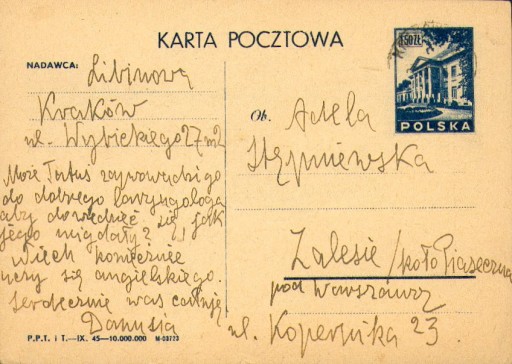 KARTA POCZTOWA
NADAWCA:
Libinową
Kraków
ul. Wybickiego 27 m2
Może Tatuś zaprowadzi go
do dobrego laryngologa
aby dowiedzieć się jak
jego migdały?
Niech koniecznie
uczy się angielskiego.
Serdecznie was całuję
Danusia
P.P.T. i T.—IX. 45—10.000.000 M-03773
1.50 ZŁ
POLSKA
Ob. Adela
Stępniewska
Zalesie / koło Piaseczna
pod Warszawą
ul. Kopernika 23.